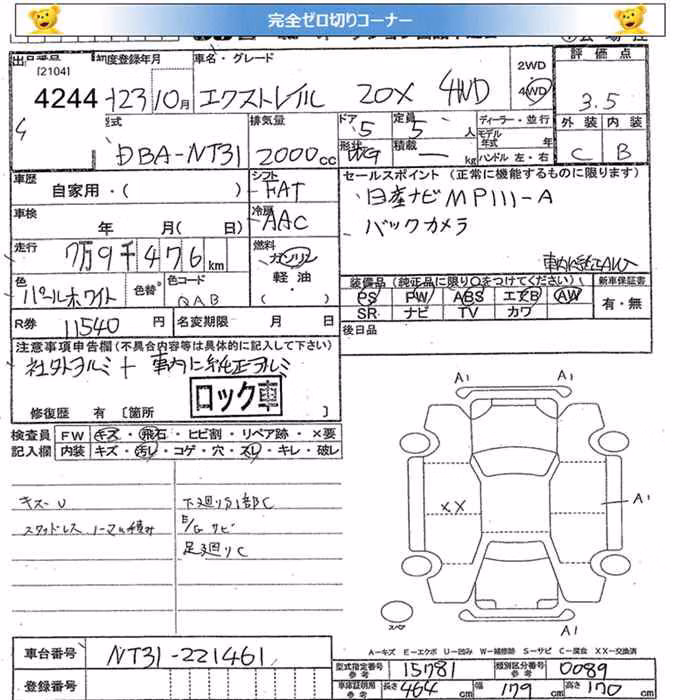 完全ゼロ切りコーナー
出品番号 [2104] 4244
初度登録年月 H23 10月
車名・グレード エクストレイル 20X 4WD
2WD 4WD
評価点 3.5
外装 内装
C B
型式 DBA-NT31
排気量 2000cc
ドア 5 定員 5 人
形状 WG 積載 — kg
ディーラー・並行
モデル年式 年式
ハンドル 左・右
車歴 自家用・( )
シフト FAT
セールスポイント (正常に機能するものに限ります)
日産ナビMP111-A
バックカメラ
車内に純正AW
車検 年 月(日)
冷房 AAC
走行 7万9千476km
燃料 ガソリン 軽油 ( ・ )
色 パールホワイト 色替 色コード QAB
装備品 (純正品に限り○をつけてください) 新車保証書
PS PW ABS エアB AW 有・無
SR ナビ TV カワ
R券 11540 円 名変期限 月 日
後日品
注意事項申告欄(不具合内容等は具体的に記入して下さい)
社外アルミ + 車内に純正アルミ
ロック車
修復歴 有 〔箇所 〕
検査員 FW キズ・飛石・ヒビ割・リペア跡・×要
記入欄 内装 キズ・汚レ・コゲ・穴・スレ・キレ・破レ
キズU 下廻り引部C
スタッドレス ノーマル積み E/Gサビ
足廻りC
A1 A1
XX A1
スペア A1
A−キズ E−エクボ U−凹み W−補修跡 S−サビ C−腐食 XX−交換済
車台番号 NT31-221461
登録番号
型式指定番号 参考 15781 類別区分番号 参考 0089
車庫証明用 参考 長さ 464 cm 幅 179 cm 高さ 170 cm